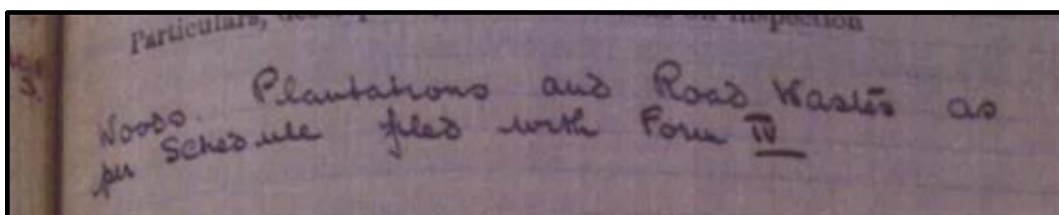 Particulars, on inspection
3.
Woods. Plantations and Road Wastes as
per Schedule filed with Form IV